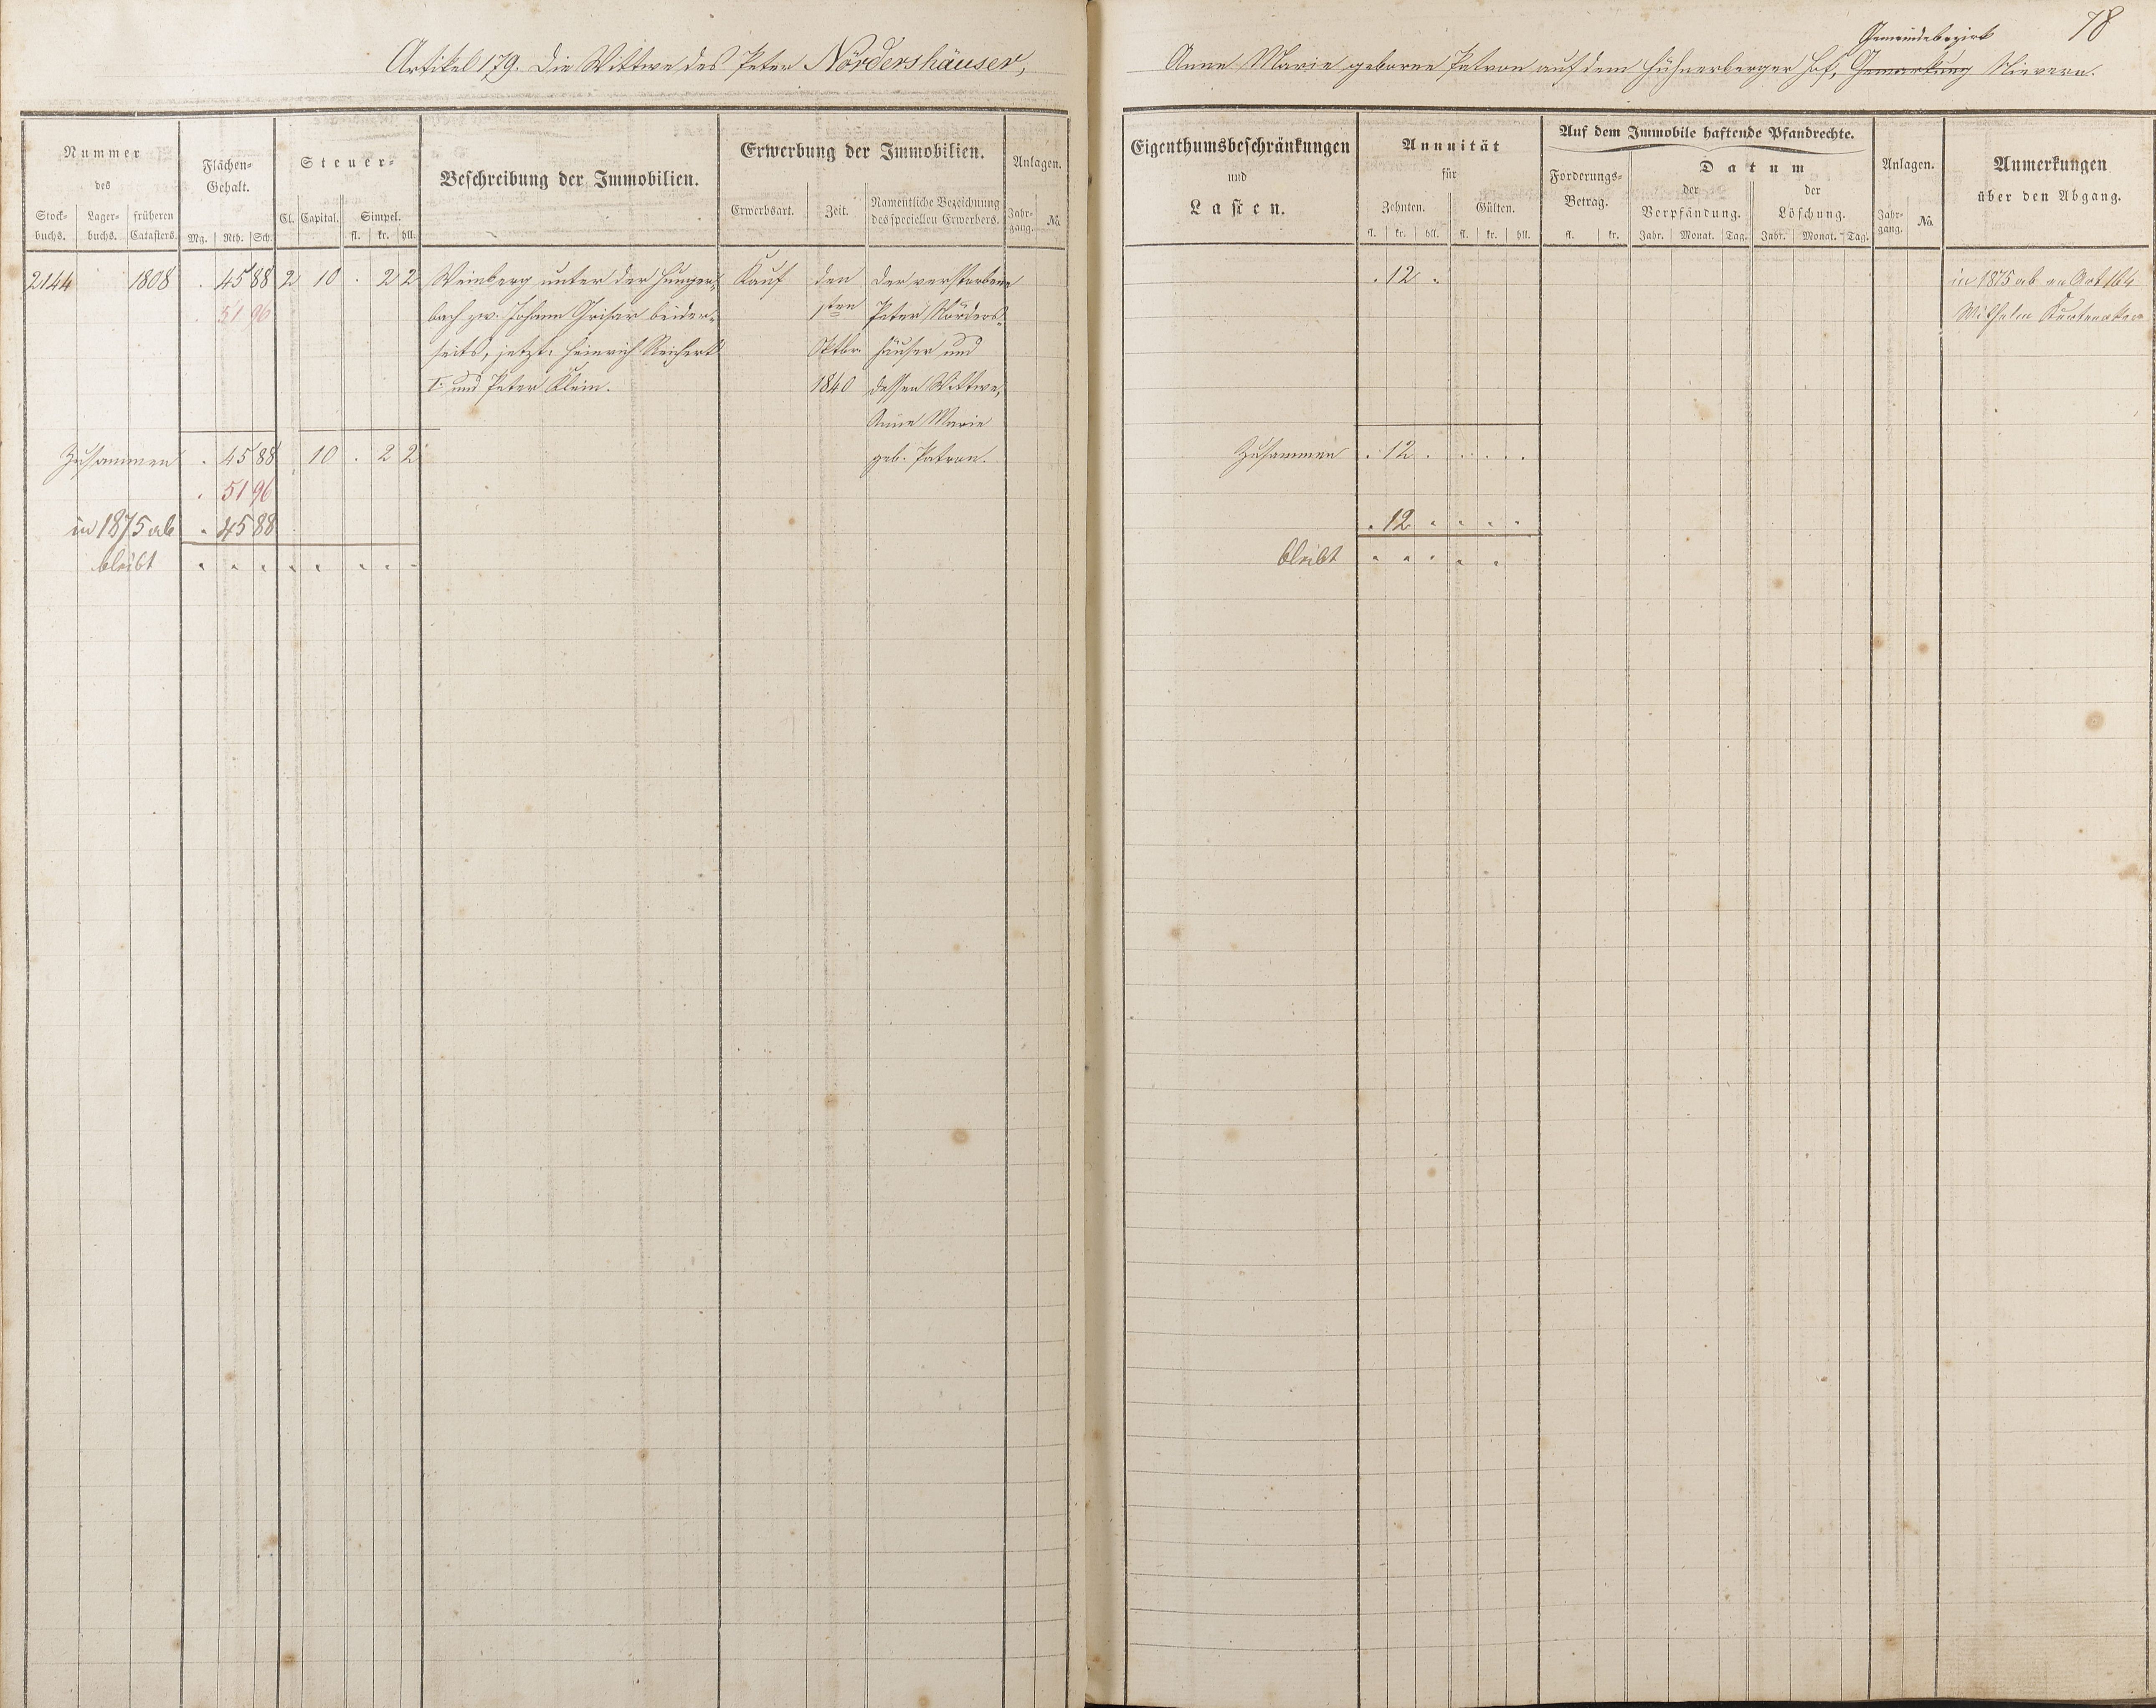 78
Gemeindebezirk
Artikel 179. Die Wittwe des Peter Nördershäuser,
Anne Marie geborne Patron auf dem Hühnerberger Hof, Gemarkung Nievern.
Nummer
des
Stock-
buchs.
Lager-
buchs.
früheren
Catasters.
Flächen-
Gehalt.
Mg. Rth. Sch.
Steuer-
Cl. Capital. Simpel.
fl. kr. hll.
Beschreibung der Immobilien.
Erwerbung der Immobilien.
Erwerbsart. Zeit. Namentliche Bezeichnung
des speciellen Erwerbers.
Anlagen.
Jahr-
gang. No.
2144 1808 . 45 88 2 10 . 2 2 Weinberg unter der Hunger- Kauf den der verstorbene
51 96 bach zw. Johann Grisar beider- 1sten Peter Nörders-
seits, jetzt: Heinrich Reichert Oktbr. häuser und
I. und Peter Klein. 1840 dessen Wittwe,
Anne Marie
Zusammen . 45 88 10 . 2 2 geb. Patron.
. 51 96
in 1875 ab . 45 88
bleibt
Eigenthumsbeschränkungen
und
Lasten.
Annuität
für
Zehnten. Gülten.
fl. kr. hll. fl. kr. hll.
Auf dem Immobile haftende Pfandrechte.
Forderungs-
Betrag.
fl. kr.
Datum
der der
Verpfändung. Löschung.
Jahr. Monat. Tag. Jahr. Monat. Tag.
Anlagen.
Jahr-
gang. No.
Anmerkungen
über den Abgang.
. 12 . in 1875 ab an Art 164
Wilhelm
Zusammen . 12 . . . . .
. 12 . . . .
bleibt